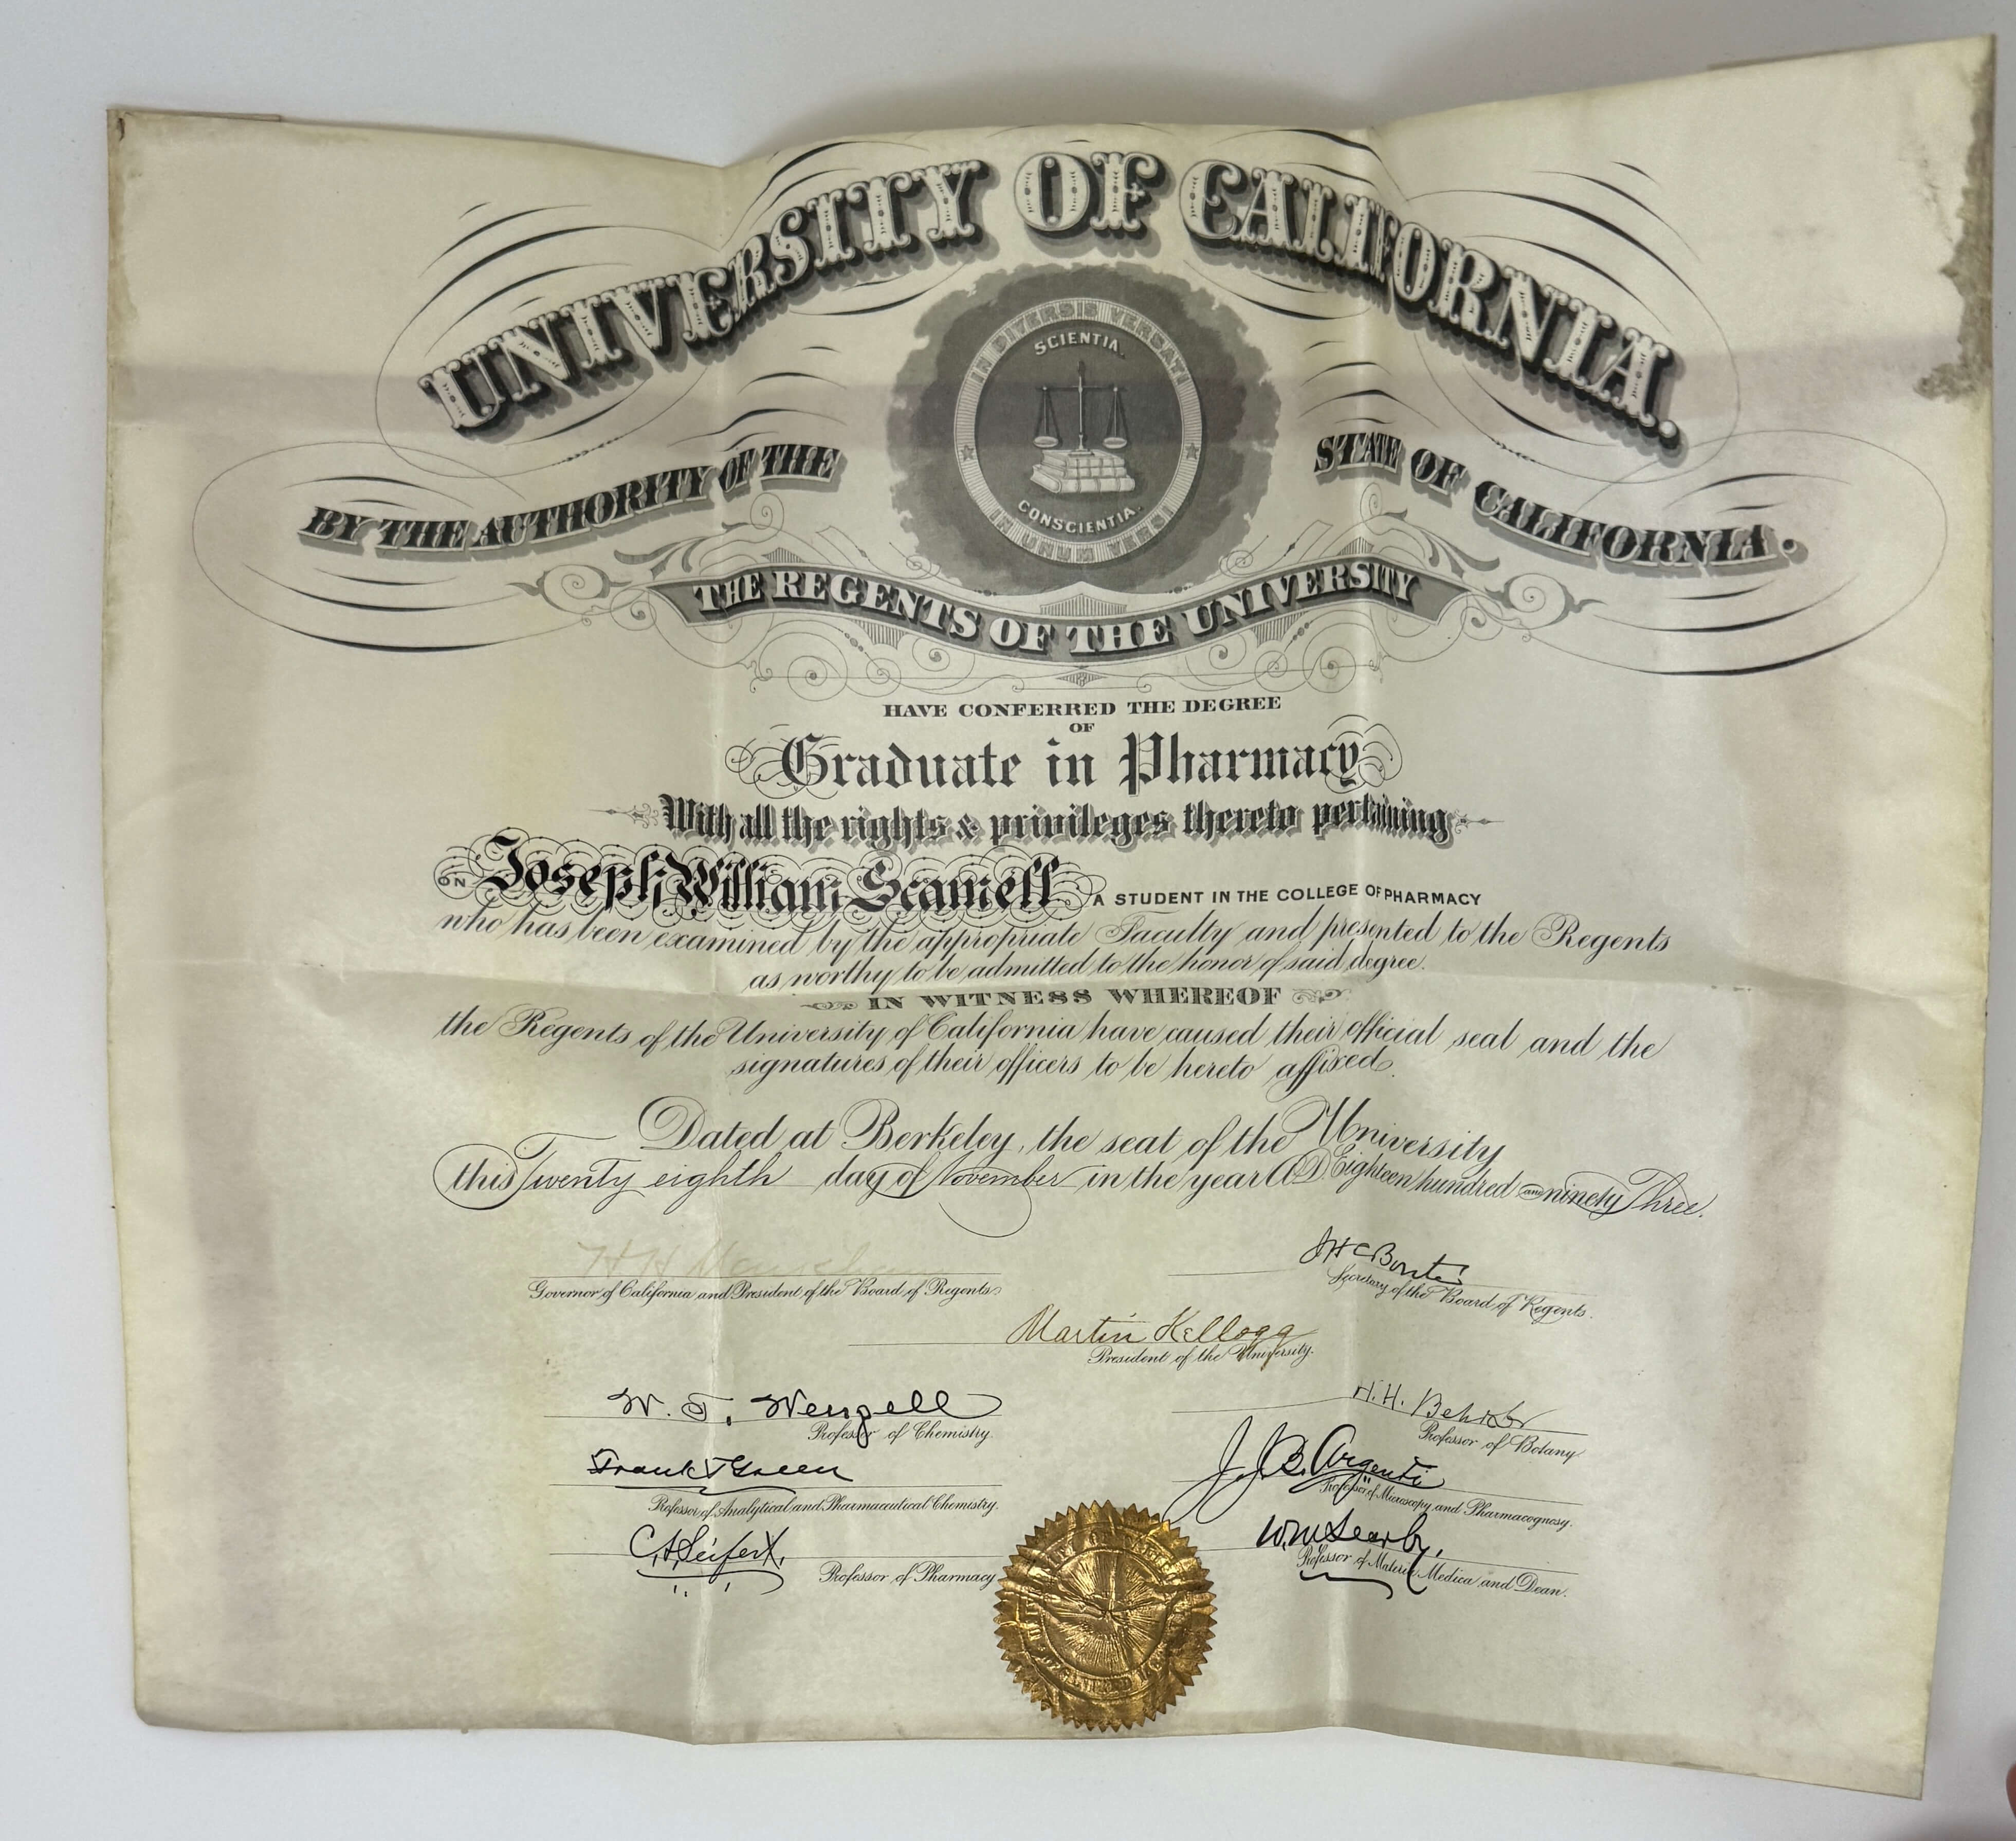 UNIVERSITY OF CALIFORNIA.
IN DIVERSIS VERSATI
SCIENTIA.
CONSCIENTIA.
IN UNUM VERSI
BY THE AUTHORITY OF THE STATE OF CALIFORNIA.
THE REGENTS OF THE UNIVERSITY
HAVE CONFERRED THE DEGREE
OF
Graduate in Pharmacy
With all the rights & privileges thereto pertaining
ON Joseph William Scamell A STUDENT IN THE COLLEGE OF PHARMACY
who has been examined by the appropriate Faculty and presented to the Regents
as worthy to be admitted to the honor of said degree.
IN WITNESS WHEREOF
the Regents of the University of California have caused their official seal and the
signatures of their officers to be hereto affixed.
Dated at Berkeley, the seat of the University
this Twenty eighth day of November in the year A.D. Eighteen hundred and ninety Three.
H H Markham
Governor of California and President of the Board of Regents.
J H C Bonté
Secretary of the Board of Regents.
Martin Kellogg
President of the University.
W. T. Wenzell
Professor of Chemistry.
H. H. Behr
Professor of Botany
Frank T Green
Professor of Analytical and Pharmaceutical Chemistry.
J. J. B. Argenti
Professor of Microscopy and Pharmacognosy.
C. A. Seifert.
Professor of Pharmacy
W. M. Searby.
Professor of Materia Medica and Dean.